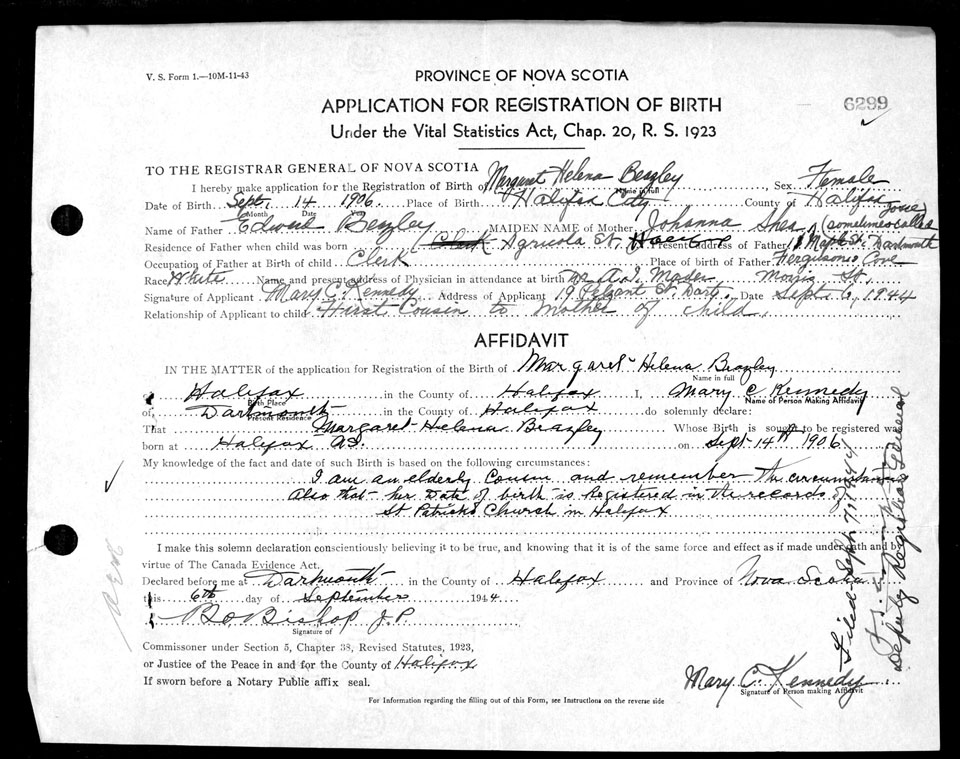 V. S. Form 1.—10M-11-43
PROVINCE OF NOVA SCOTIA
APPLICATION FOR REGISTRATION OF BIRTH
6299
Under the Vital Statistics Act, Chap. 20, R. S. 1923
TO THE REGISTRAR GENERAL OF NOVA SCOTIA
I hereby make application for the Registration of Birth of Margaret Helena Beazley Sex Female
Name in full
Date of Birth Sept. 14 1906 Place of Birth Halifax City County of Halifax
Month Date Year
Name of Father Edward Beazley MAIDEN NAME of Mother Johanna Shea (sometimes called Josie)
Residence of Father when child was born Clerk Agricola St. Present Address of Father Maple St. Dartmouth
Occupation of Father at Birth of child Clerk Place of Birth of Father Fergusons Cove
Race White Name and present address of Physician in attendance at birth Dr A. I. Mader Morris St.
Signature of Applicant Mary C. Kennedy Address of Applicant 19 St. Dart. Date Sept. 6, 1944
Relationship of Applicant to child First Cousin to mother of child.
AFFIDAVIT
IN THE MATTER of the application for Registration of the Birth of Margaret Helena Beazley
Name in full
of Halifax in the County of Halifax I, Mary C Kennedy
Birth Place Name of Person Making Affidavit
of Dartmouth in the County of Halifax do solemnly declare:
Present Residence
That Margaret Helena Beazley Whose Birth is sought to be registered was
born at Halifax N.S. on Sept 14th 1906
My knowledge of the fact and date of such Birth is based on the following circumstances:
I am an elderly Cousin and remember the circumstances
Also that her Date of birth is Registered in the records of
St Patricks Church in Halifax
I make this solemn declaration conscientiously believing it to be true, and knowing that it is of the same force and effect as if made under oath and by
virtue of The Canada Evidence Act.
Declared before me at Dartmouth in the County of Halifax and Province of Nova Scotia
this 6th day of September 1944
B O Bishop J.P.
Signature of
Commissoner under Section 5, Chapter 38, Revised Statutes, 1923,
or Justice of the Peace in and for the County of Halifax
If sworn before a Notary Public affix seal.
Mary C. Kennedy
Signature of Person making Affidavit
For Information regarding the filling out of this Form, see Instructions on the reverse side
Filed Sept. 7, 1944
Deputy Registrar General